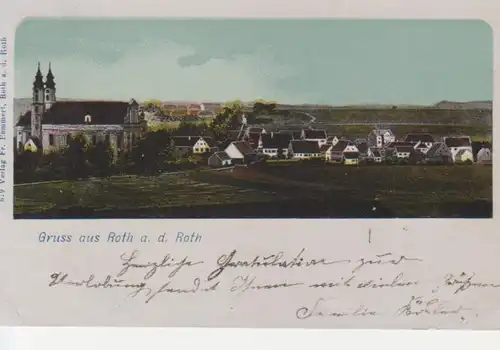 679 Verlag Fr. Pammert, Roth a. d. Roth
Gruss aus Roth a. d. Roth
Herzliche Gratulation zur
Verlobung sendet Ihnen mit vielen Grüßen
Familie